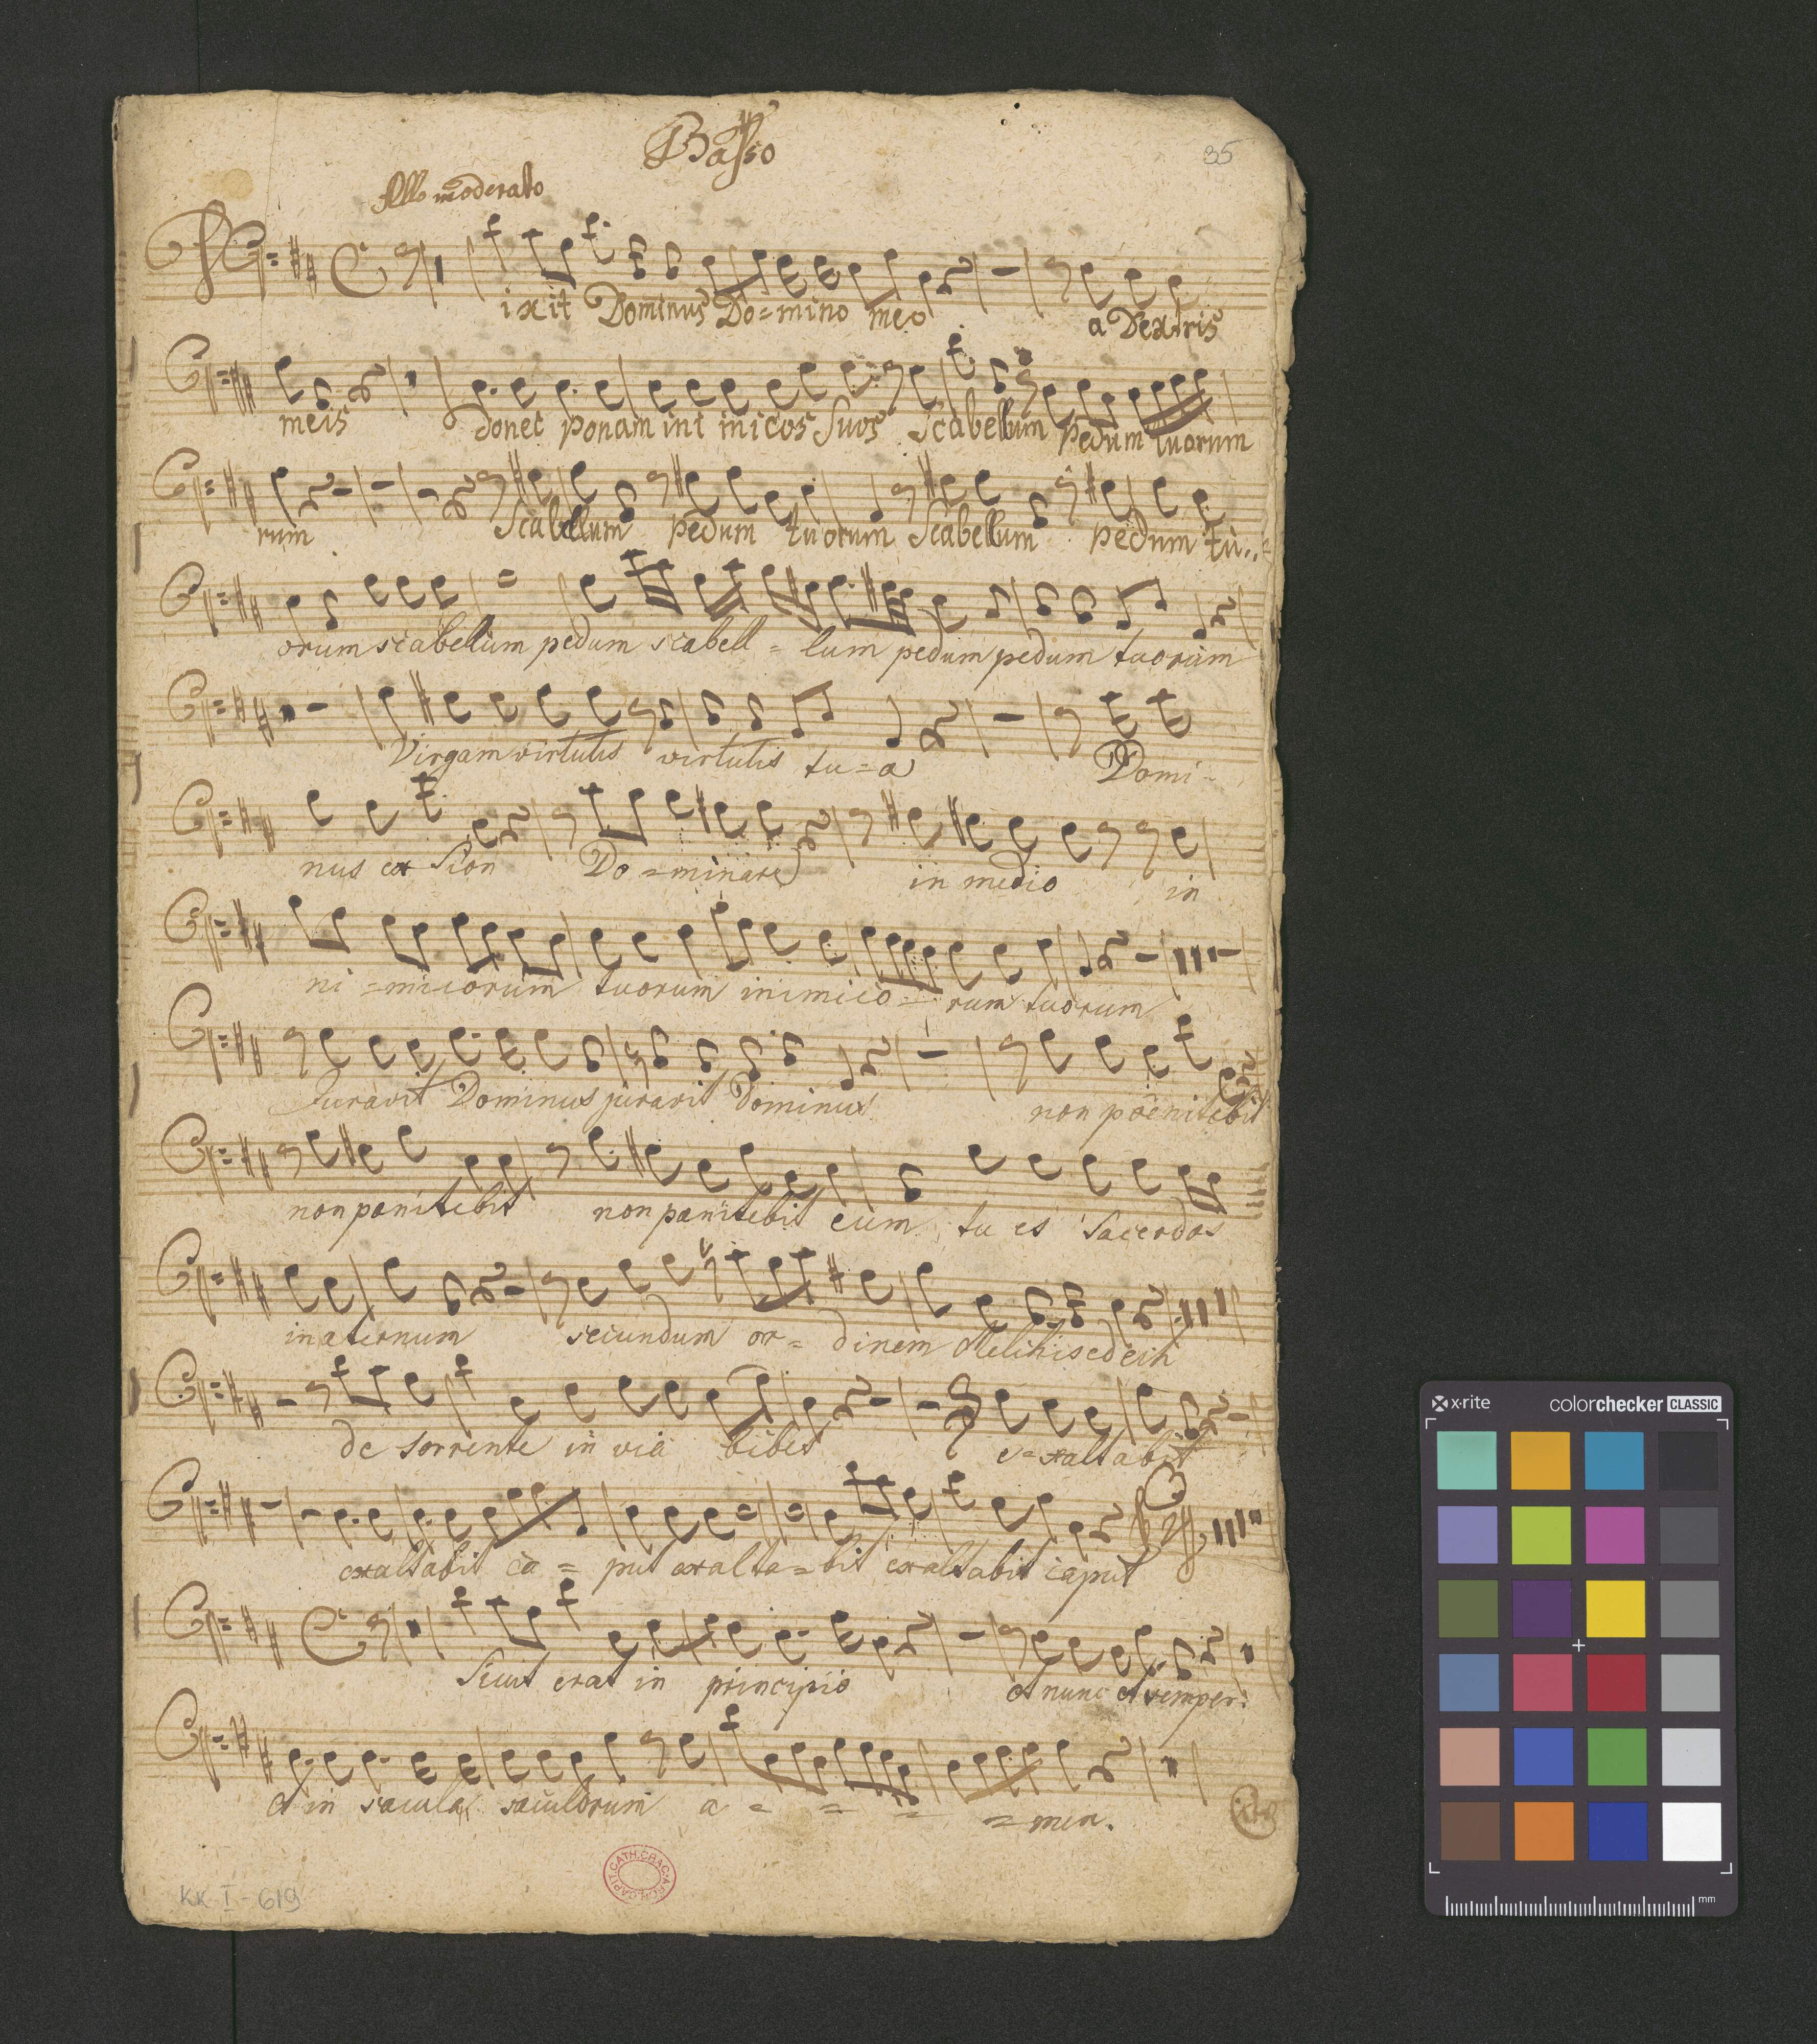 Basso
35
Allo moderato
ixit Dominus Do=mino meo a Dextris
meis donec ponam ini micos Suos Scabellum pedum tuorum
rum Scabellum pedum tuorum Scabellum pedum tu..=
orum scabellum pedum scabell = lum pedum pedum tuorum
Virgam virtutis virtutis tu=a Domi-
nus ex Sion Do=minare in medio in
ni =micorum tuorum inimico = rum tuorum
Juravit Dominus juravit Dominus non poenitebit
non panitebit non panitebit eum tu es Sacerdos
in aternum secundum or= dinem Melchisedech
de torrente in via bibet e=xaltabit
exaltabit ca = put exalta=bit exaltabit caput
Sicut erat in principio et nunc et semper:
et in sacula saculorum a = = = = men.
KK I-619
ARCH.CAPIT.CATH.CRAC.
x·rite colorchecker CLASSIC
mm